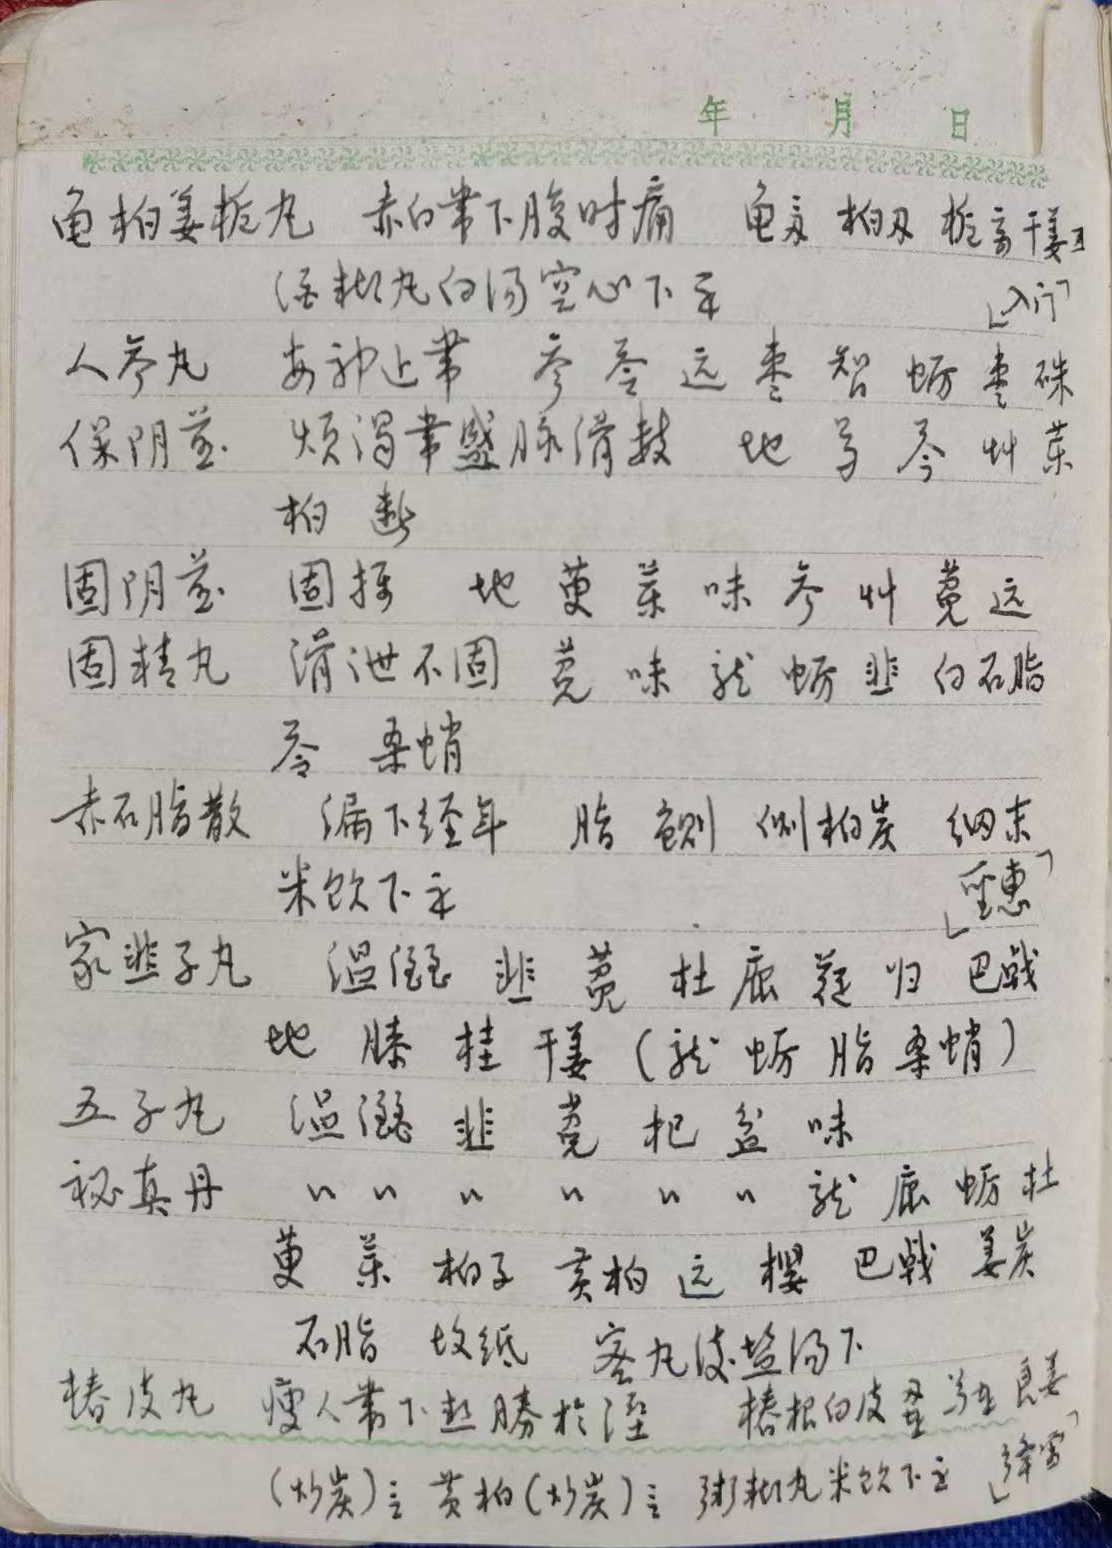 年 月 日
龟柏姜栀丸 赤白带下腹时痛 龟 柏 栀 干姜
酒糊丸白汤空心下
「入门」
人参丸 安神止带 参 苓 远 枣 智 蛎 枣 硃
保阴煎 烦渴带盛脉滑数 地 芍 芩 艸 药
柏 断
固阴煎 固摄 地 萸 药 味 参 艸 菟 远
固精丸 滑泄不固 菟 味 龙 蛎 韭 白石脂
苓 桑蛸
赤石脂散 漏下经年 脂 侧柏炭 细末
米饮下
「圣惠」
家韭子丸 温涩 韭 菟 杜 鹿 苁 归 巴戟
地 膝 桂 干姜 (龙 蛎 脂 桑蛸)
五子丸 温涩 韭 菟 杞 盆 味
秘真丹 〃 〃 〃 〃 〃 〃 龙 鹿 蛎 杜
萸 药 柏子 黄柏 远 樱 巴戟 姜炭
石脂 故纸 蜜丸淡盐汤下
椿皮丸 瘦人带下热胜於湿 椿根白皮 芍 良姜
(炒炭) 黄柏(炒炭) 粥糊丸米饮下